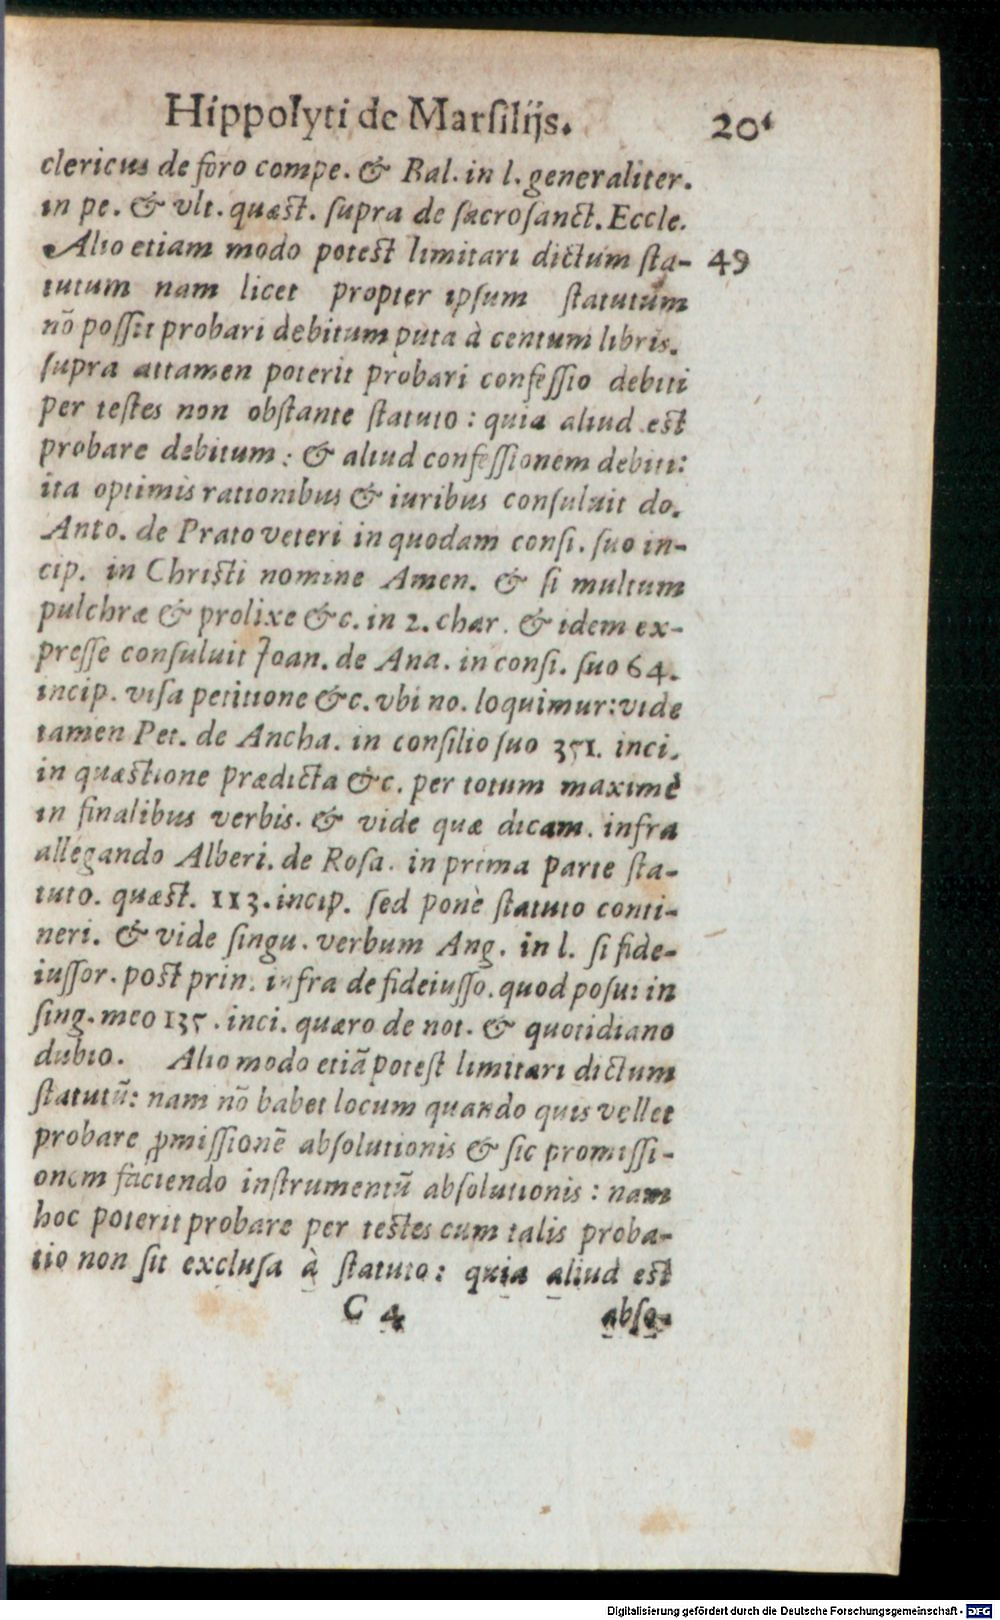 Hippolyti de Marſilijs. 20
clericus de foro compe. & Bal. in l. generaliter.
in pe. & vlt. quæst. ſupra de ſacroſanct. Eccle.
Alio etiam modo potest limitari dictum ſta- 49
tutum nam licet propter ipſum ſtatutum
nō poſſit probari debitum puta à centum libris.
ſupra attamen poterit probari confeſſio debiti
per teſtes non obſtante ſtatuto: quia aliud est
probare debitum: & aliud confeſſionem debiti:
ita optimis rationibus & iuribus conſuluit do.
Anto. de Prato veteri in quodam conſi. ſuo in-
cip. in Christi nomine Amen. & ſi multum
pulchræ & prolixe &c. in 2. char. & idem ex-
preſſe conſuluit Joan. de Ana. in conſi. ſuo 64.
incip. viſa petitione &c. vbi no. loquimur: vide
tamen Pet. de Ancha. in conſilio ſuo 351. inci.
in quæstione prædicta &c. per totum maximè
in finalibus verbis. & vide quæ dicam. infra
allegando Alberi. de Roſa. in prima parte ſta-
tuto. quæst. 113. incip. ſed ponè ſtatuto conti-
neri. & vide ſingu. verbum Ang. in l. ſi fide-
iuſſor. post prin. infra de fideiuſſo. quod poſui in
ſing. meo 135. inci. quæro de not. & quotidiano
dubio. Alio modo etiā poteſt limitari dictum
ſtatutū: nam nō habet locum quando quis vellet
probare ꝓmiſſionē abſolutionis & ſic promiſſi-
onem faciendo inſtrumentū abſolutionis: nam
hoc poterit probare per testes cum talis proba-
tio non ſit excluſa à ſtatuto: quia aliud est
C 4 abſo-
Digitalisierung gefördert durch die Deutsche Forschungsgemeinschaft - DFG